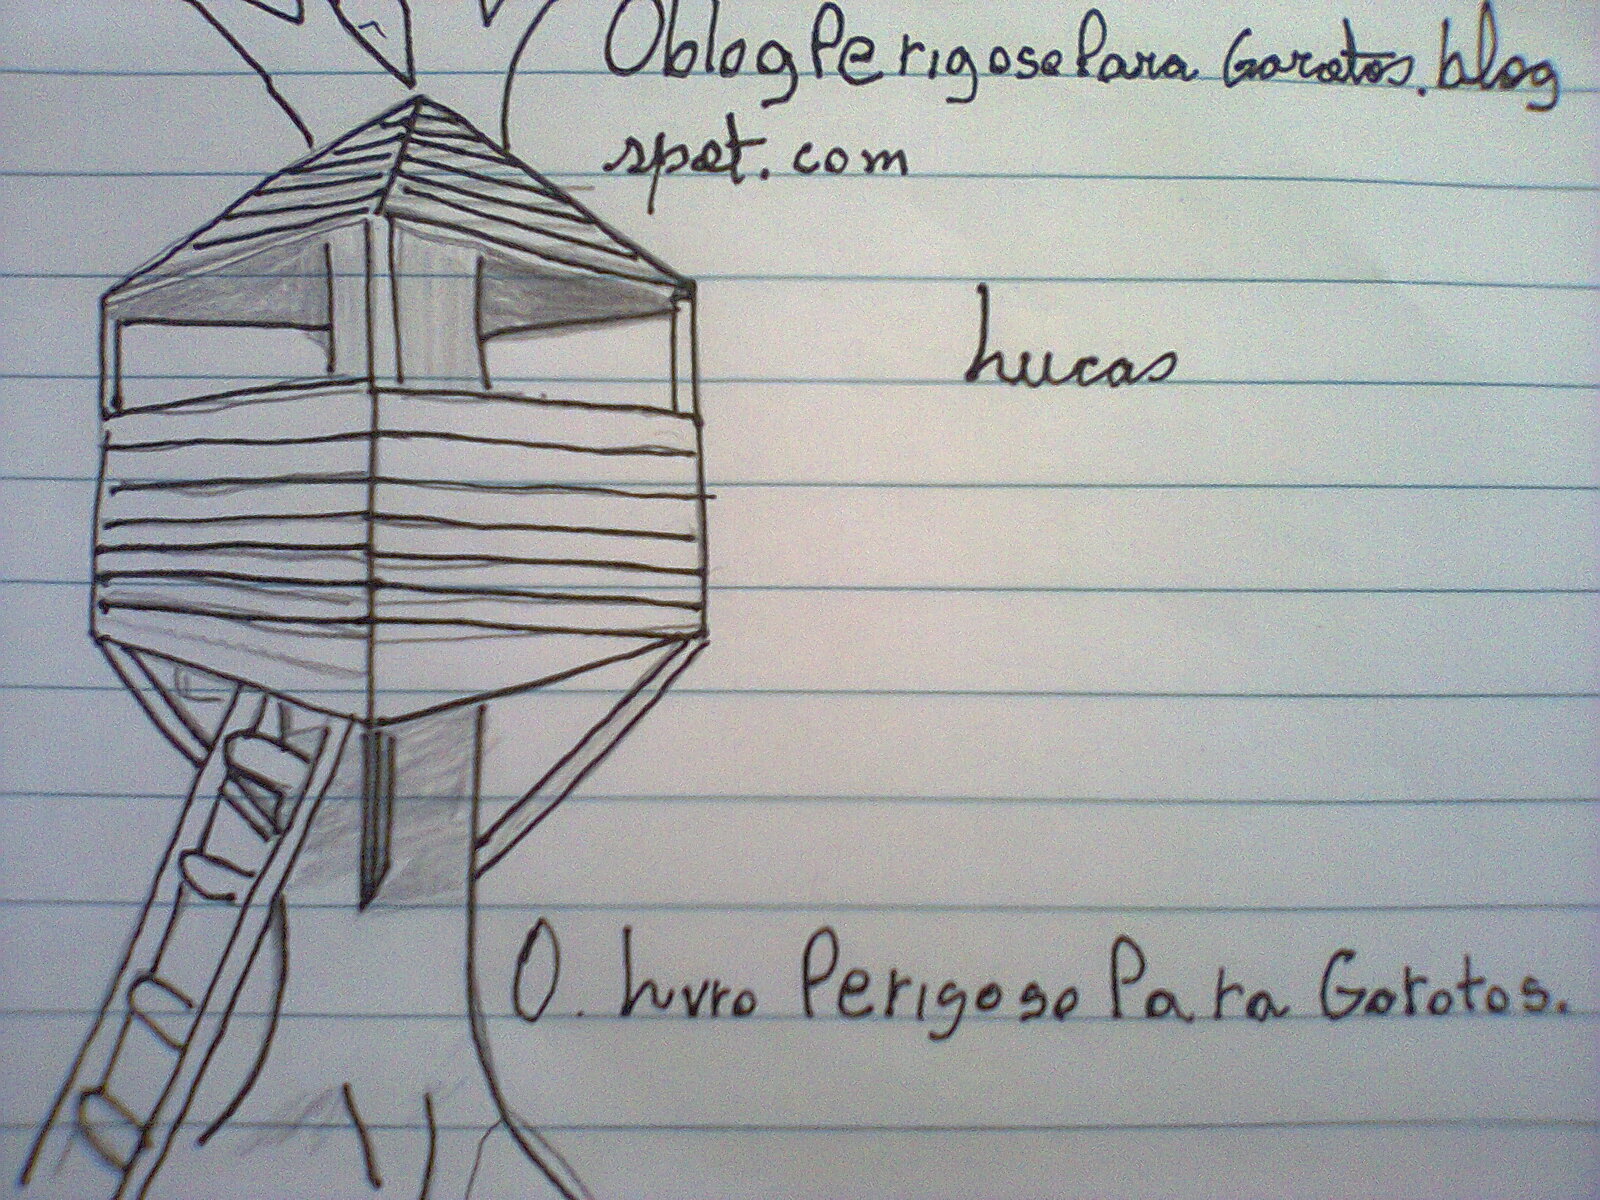 OblogPerigosoPara Garotos.blog
spot.com
Lucas
O. Livro Perigoso Para Garotos.